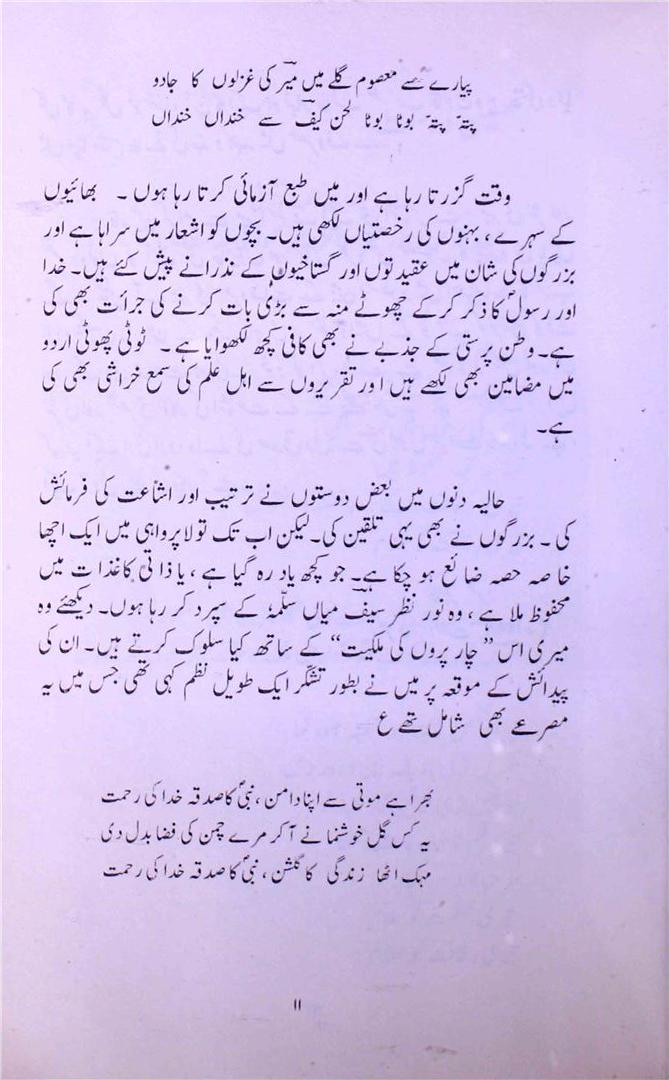 پیارے سے معصوم گلے میں میرؔ کی غزلوں کا جادو
پتہ پتہ بوٹا بوٹا لحن کیفؔ سے خنداں خنداں
وقت گزرتا رہا ہے اور میں طبع آزمائی کرتا رہا ہوں ۔ بھائیوں
کے سہرے ، بہنوں کی رخصتیاں لکھی ہیں۔ بچوں کو اشعار میں سراہا ہے اور
بزرگوں کی شان میں عقیدتوں اور گستاخیوں کے نذرانے پیش کئے ہیں۔ خدا
اور رسولؐ کا ذکر کرکے چھوٹے منہ سے بڑی بات کرنے کی جرأت بھی کی
ہے۔ وطن پرستی کے جذبے نے بھی کافی کچھ لکھوایا ہے ۔ ٹوٹی پھوٹی اردو
میں مضامین بھی لکھے ہیں اور تقریروں سے اہل علم کی سمع خراشی بھی کی
ہے۔
حالیہ دنوں میں بعض دوستوں نے ترتیب اور اشاعت کی فرمائش
کی ۔ بزرگوں نے بھی یہی تلقین کی۔ لیکن اب تک تو لاپرواہی میں ایک اچھا
خاصہ حصہ ضائع ہو چکا ہے۔ جو کچھ یاد رہ گیا ہے ، یا ذاتی کاغذات میں
محفوظ ملا ہے ، وہ نور نظر سیفؔ میاں سلّمہٗ کے سپرد کر رہا ہوں۔ دیکھئے وہ
میری اس ”چار پروں کی ملکیت“ کے ساتھ کیا سلوک کرتے ہیں۔ ان کی
پیدائش کے موقعہ پر میں نے بطور تشکّر ایک طویل نظم کہی تھی جس میں یہ
مصرعے بھی شامل تھے ع
بھرا ہے موتی سے اپنا دامن ، نبیؐ کا صدقہ خدا کی رحمت
یہ کس گل خوشنما نے آکر مرے چمن کی فضا بدل دی
مہک اٹھا زندگی کا گلشن ، نبیؐ کا صدقہ خدا کی رحمت
۱۱